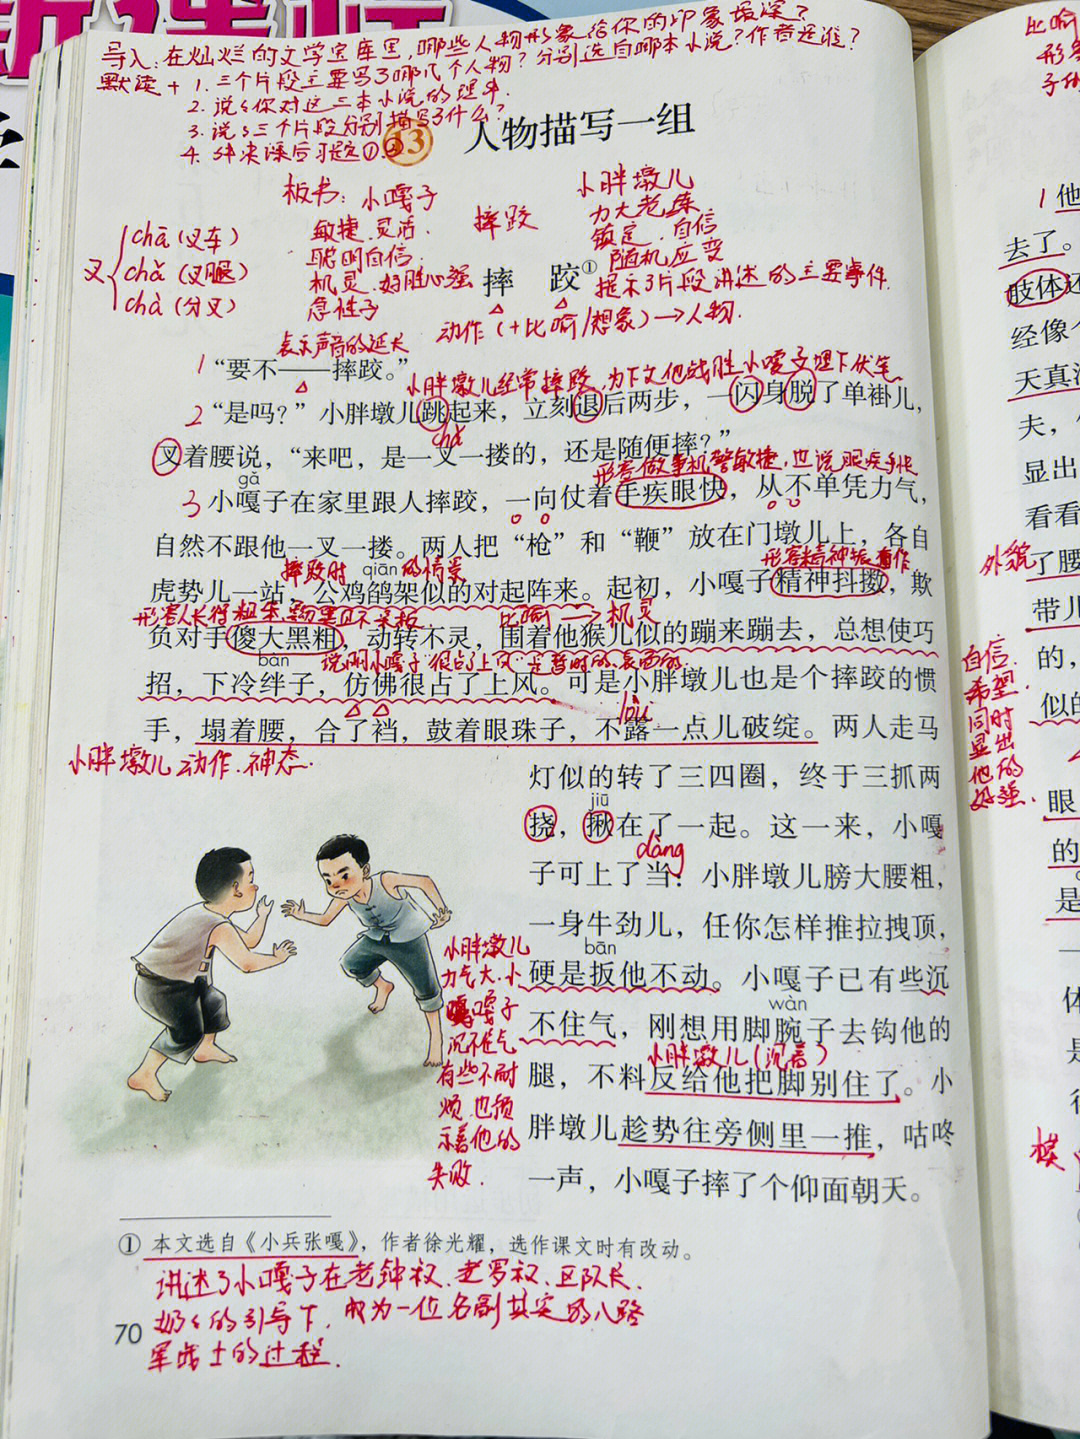 新课标
导入：在灿烂的文学宝库里，哪些人物形象给你的印象最深？
分别选自哪本小说？作者是谁？
默读 + 1. 三个片段主要写了哪几个人物？
2. 说々你对这三本小说的理解.
3. 说々三个片段分别描写了什么？
4. 解决课后习题①.②
13 人物描写一组
板书：小嘎子
敏捷.灵活.
聪明自信.
机灵.好胜心强
急性子
摔跤
小胖墩儿
力大老练
镇定.自信
随机应变
叉
chā（叉车）
chǎ（叉腿）
chà（分叉）
摔 跤①
提示了片段讲述的主要事件.
动作（+比喻/想象）→人物.
表示声音的延长
1 “要不——摔跤。”
小胖墩儿经常摔跤，为下文他战胜小嘎子埋下伏笔
2 “是吗？”小胖墩儿跳起来，立刻退后两步，一闪身脱了单褂儿，
chā
叉着腰说，“来吧，是一叉一搂的，还是随便摔？”
形容做事机警敏捷，也说眼疾手快
gǎ
3 小嘎子在家里跟人摔跤，一向仗着手疾眼快，从不单凭力气，
自然不跟他一叉一搂。两人把“枪”和“鞭”放在门墩儿上，各自
摔跤时 的情景
qiān
形容精神振奋
虎势儿一站，公鸡鹐架似的对起阵来。起初，小嘎子精神抖擞，欺
形容人长得粗笨
比喻→机灵
负对手傻大黑粗，动转不灵，围着他猴儿似的蹦来蹦去，总想使巧
bàn
说明小嘎子“很占了上风”是暂时的、表面的.
招，下冷绊子，仿佛很占了上风。可是小胖墩儿也是个摔跤的惯
lòu
手，塌着腰，合了裆，鼓着眼珠子，不露一点儿破绽。两人走马
小胖墩儿动作.神态.
灯似的转了三四圈，终于三抓两
jiū
挠，揪在了一起。这一来，小嘎
dàng
子可上了当：小胖墩儿膀大腰粗，
一身牛劲儿，任你怎样推拉拽顶，
bān
硬是扳他不动。小嘎子已有些沉
wàn
不住气，刚想用脚腕子去钩他的
小胖墩儿（沉着）
腿，不料反给他把脚别住了。小
胖墩儿趁势往旁侧里一推，咕咚
一声，小嘎子摔了个仰面朝天。
小胖墩儿
力气大.小
嘎子
沉不住气
有些不耐
烦.也预
示着他的
失败.
① 本文选自《小兵张嘎》，作者徐光耀，选作课文时有改动。
讲述了小嘎子在老钟叔、老罗叔、区队长、
奶々的引导下，成为一位名副其实的八路
军战士的过程.
70
比喻
形
子
1 他
去了。
肢体还
经像个
天真
夫，
显出
看看
外貌
了腰
带儿
的，
似的
自信.
希望.
同时
显出
他的
好强.
眼
的
是
体
是
模